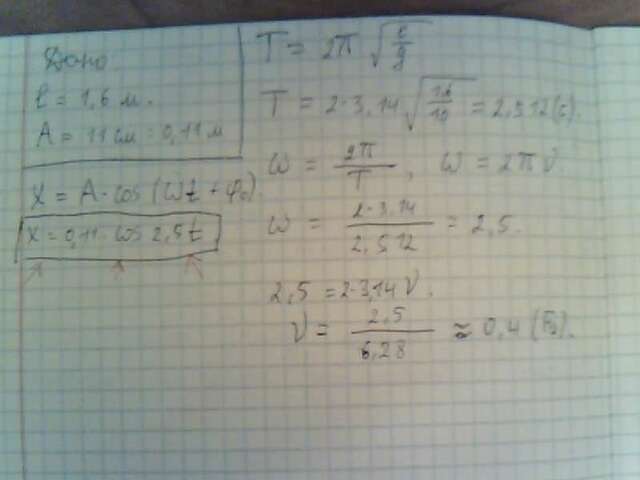 Дано
l = 1,6 м.
A = 11 см = 0,11 м
X = A · cos (ωt + φ₀).
x = 0,11 · cos 2,5 t
T = 2π √(l/g)
T = 2·3,14 √(1,6/10) = 2,512 (с).
ω = 2π/T , ω = 2πν
ω = 2·3,14/2,512 = 2,5.
2,5 = 2·3,14 ν.
ν = 2,5/6,28 ≈ 0,4 (Гц).